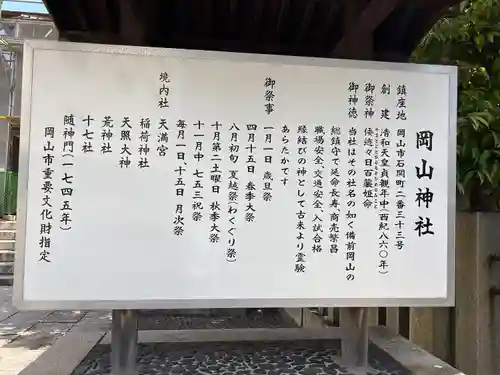 岡山神社
鎮座地 岡山市石関町二番三十三号
創建 清和天皇貞観年中(西紀八六〇年)
御祭神 倭迹々日百襲姫命
御神徳 当社はその社名の如く備前岡山の
総鎮守で延命長寿、商売繁昌
職場安全、交通安全、入試合格
縁結びの神として古来より霊験
あらたかです
御祭事 一月一日 歳旦祭
四月十五日 春季大祭
八月初旬 夏越祭(わくぐり祭)
十月第二土曜日 秋季大祭
十一月中 七五三祭
毎月一日、十五日 月次祭
境内社 天満宮
稲荷神社
天照大神
荒神社
十七社
随神門(一七四五年)
岡山市重要文化財指定